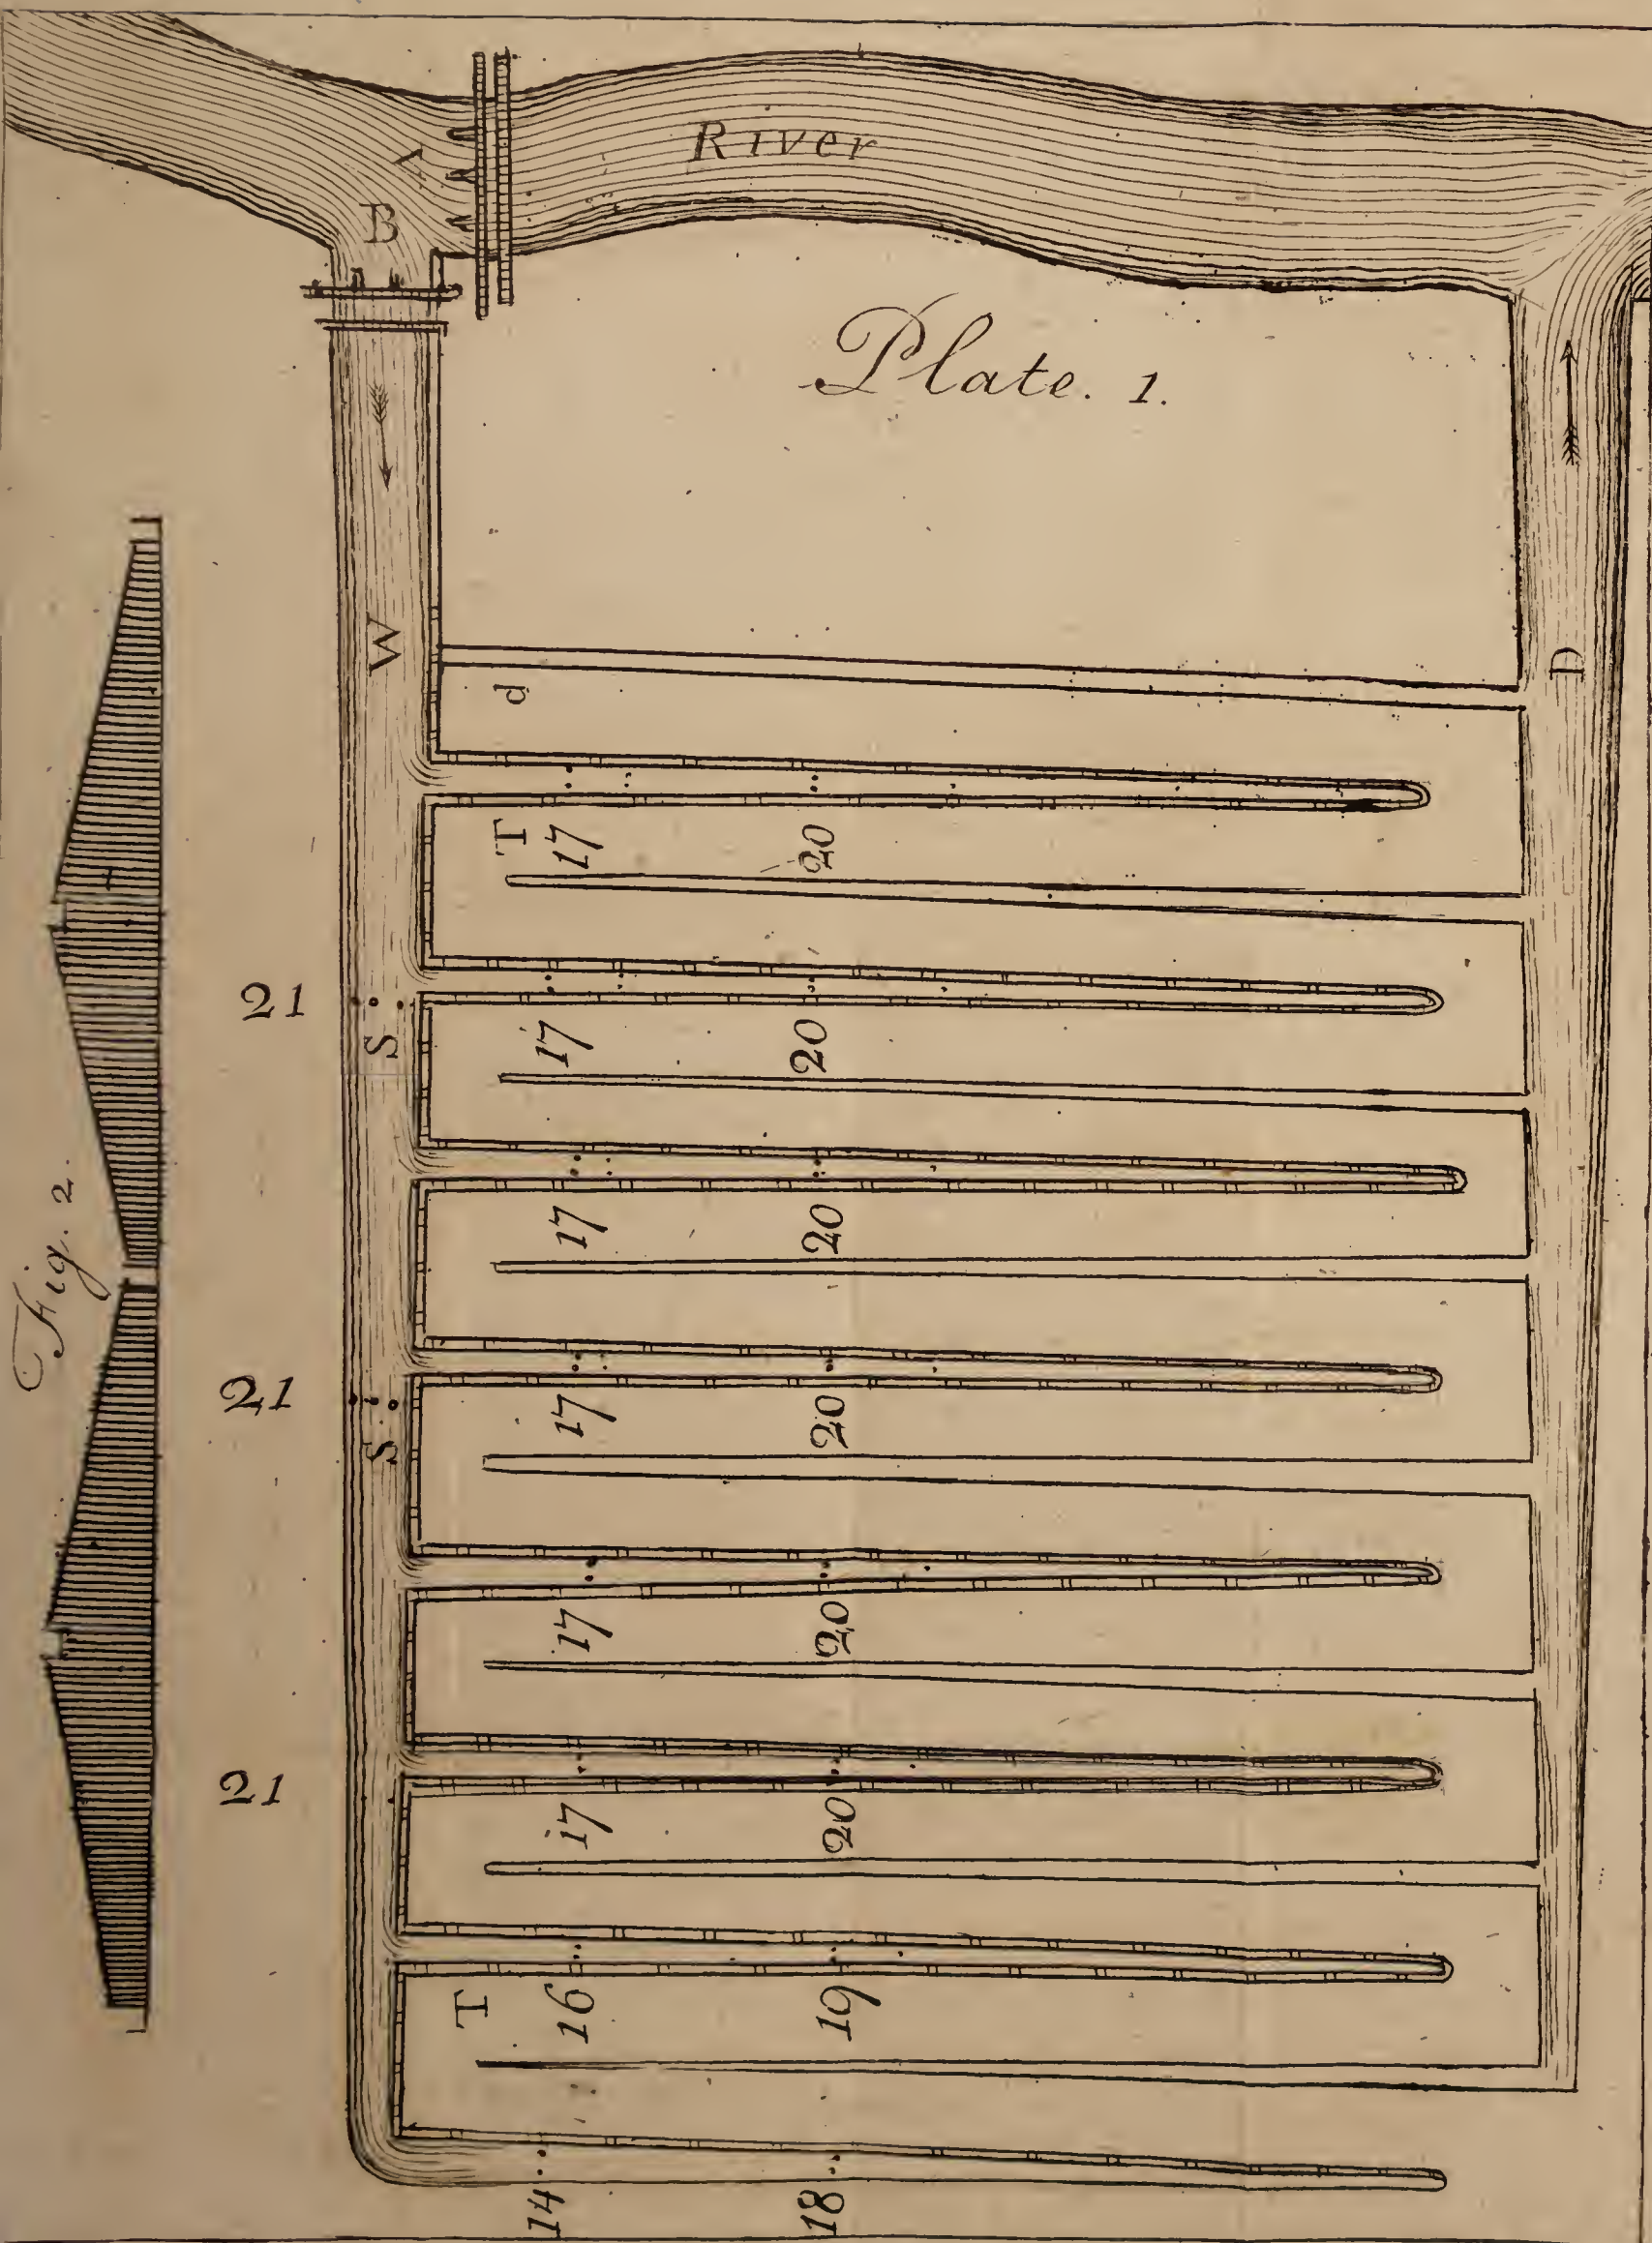 River
A
B
Plate. 1.
W
D
d
T
17
20
21
S
17
20
17
20
Fig. 2.
21
S
17
20
17
20
21
17
20
T
16
19
14
18